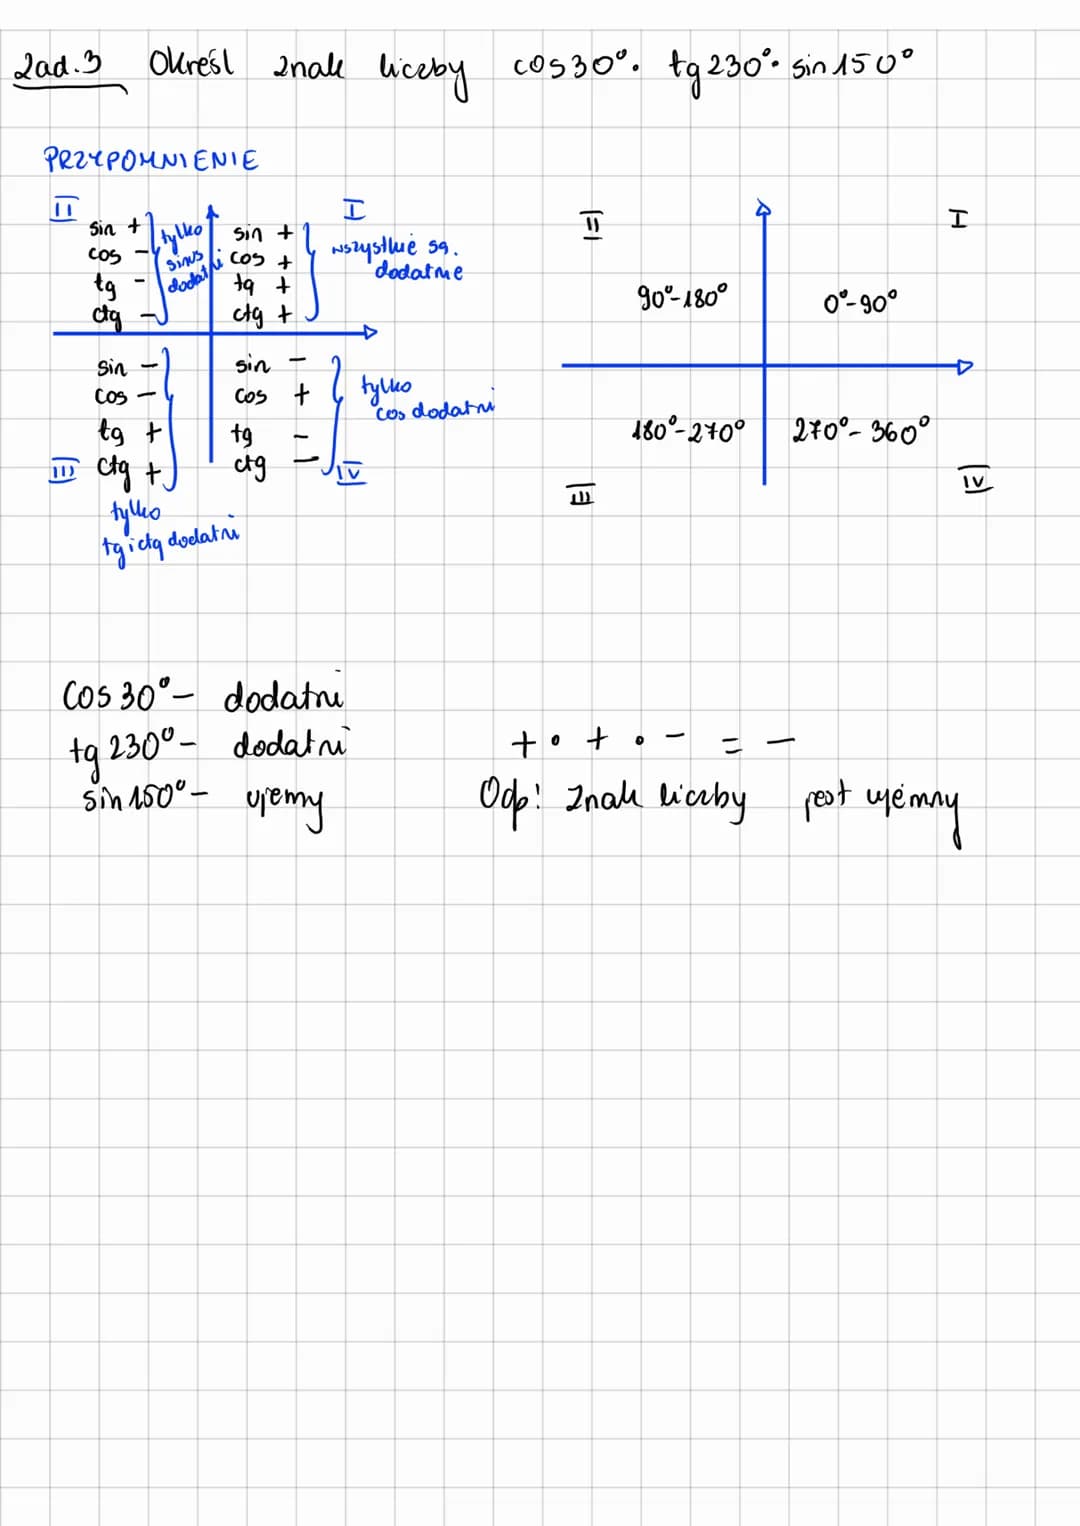 Zad.3 Określ znak liczby cos30°. tg230°. sin150°
PRZYPOMNIENIE
II
sin +
cos -
tg -
ctg -
tylko
sinus
dodatni
I
sin +
cos +
tg +
ctg +
wszystkie są.
dodatnie
sin -
cos -
tg +
III ctg +
tylko
tg i ctg dodatni
sin -
cos +
tg -
ctg -
tylko
cos dodatni
IV
II
I
90°-180°
0°-90°
180°-270°
270°-360°
III
IV
cos 30° - dodatni
tg 230° - dodatni
sin 150° - ujemny
+ • + • - = -
Odp! Znak liczby jest ujemny